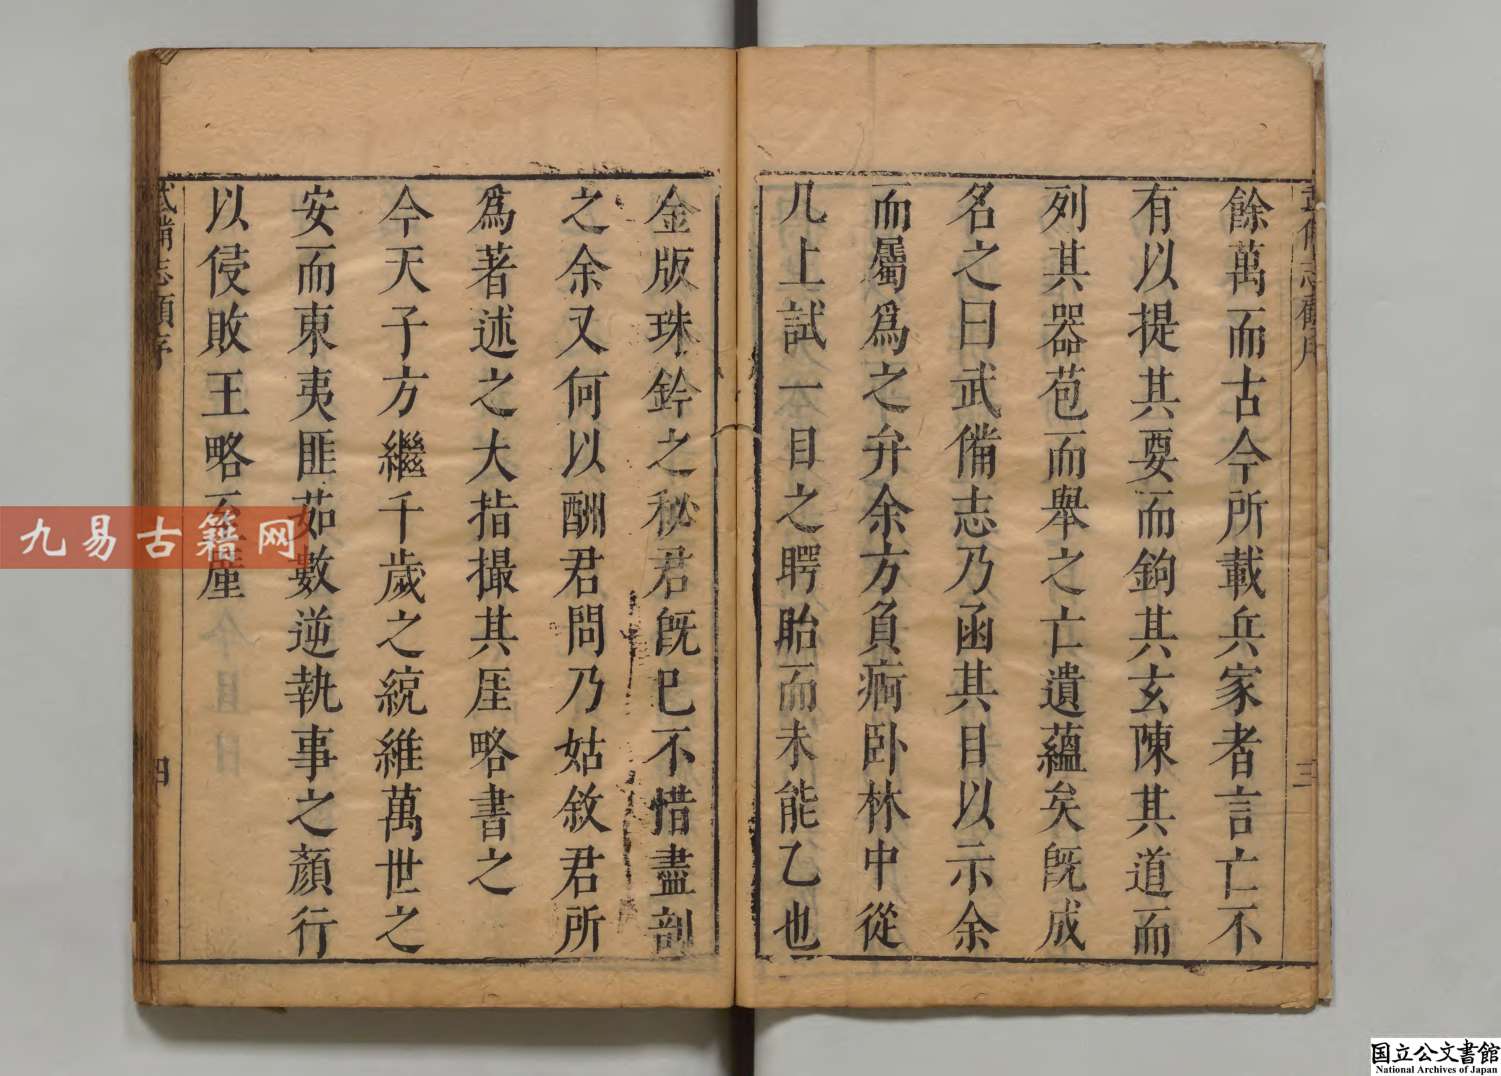 餘萬而古今所載兵家者言亡不
有以提其要而鉤其玄陳其道而
列其器苞而舉之亡遺蘊矣旣成
名之曰武備志乃函其目以示余
而屬爲之弁余方負痾卧林中從
几上試一目之瞪眙而未能乙也
金版珠鈐之秘君旣已不惜盡剖
之余又何以酬君問乃姑敘君所
爲著述之大指撮其厓略書之
今天子方繼千歲之統維萬世之
安而東夷匪茹數逆執事之顏行
以侵敗王略
武備志顧序
四
三
九易古籍网
国立公文書館
National Archives of Japan